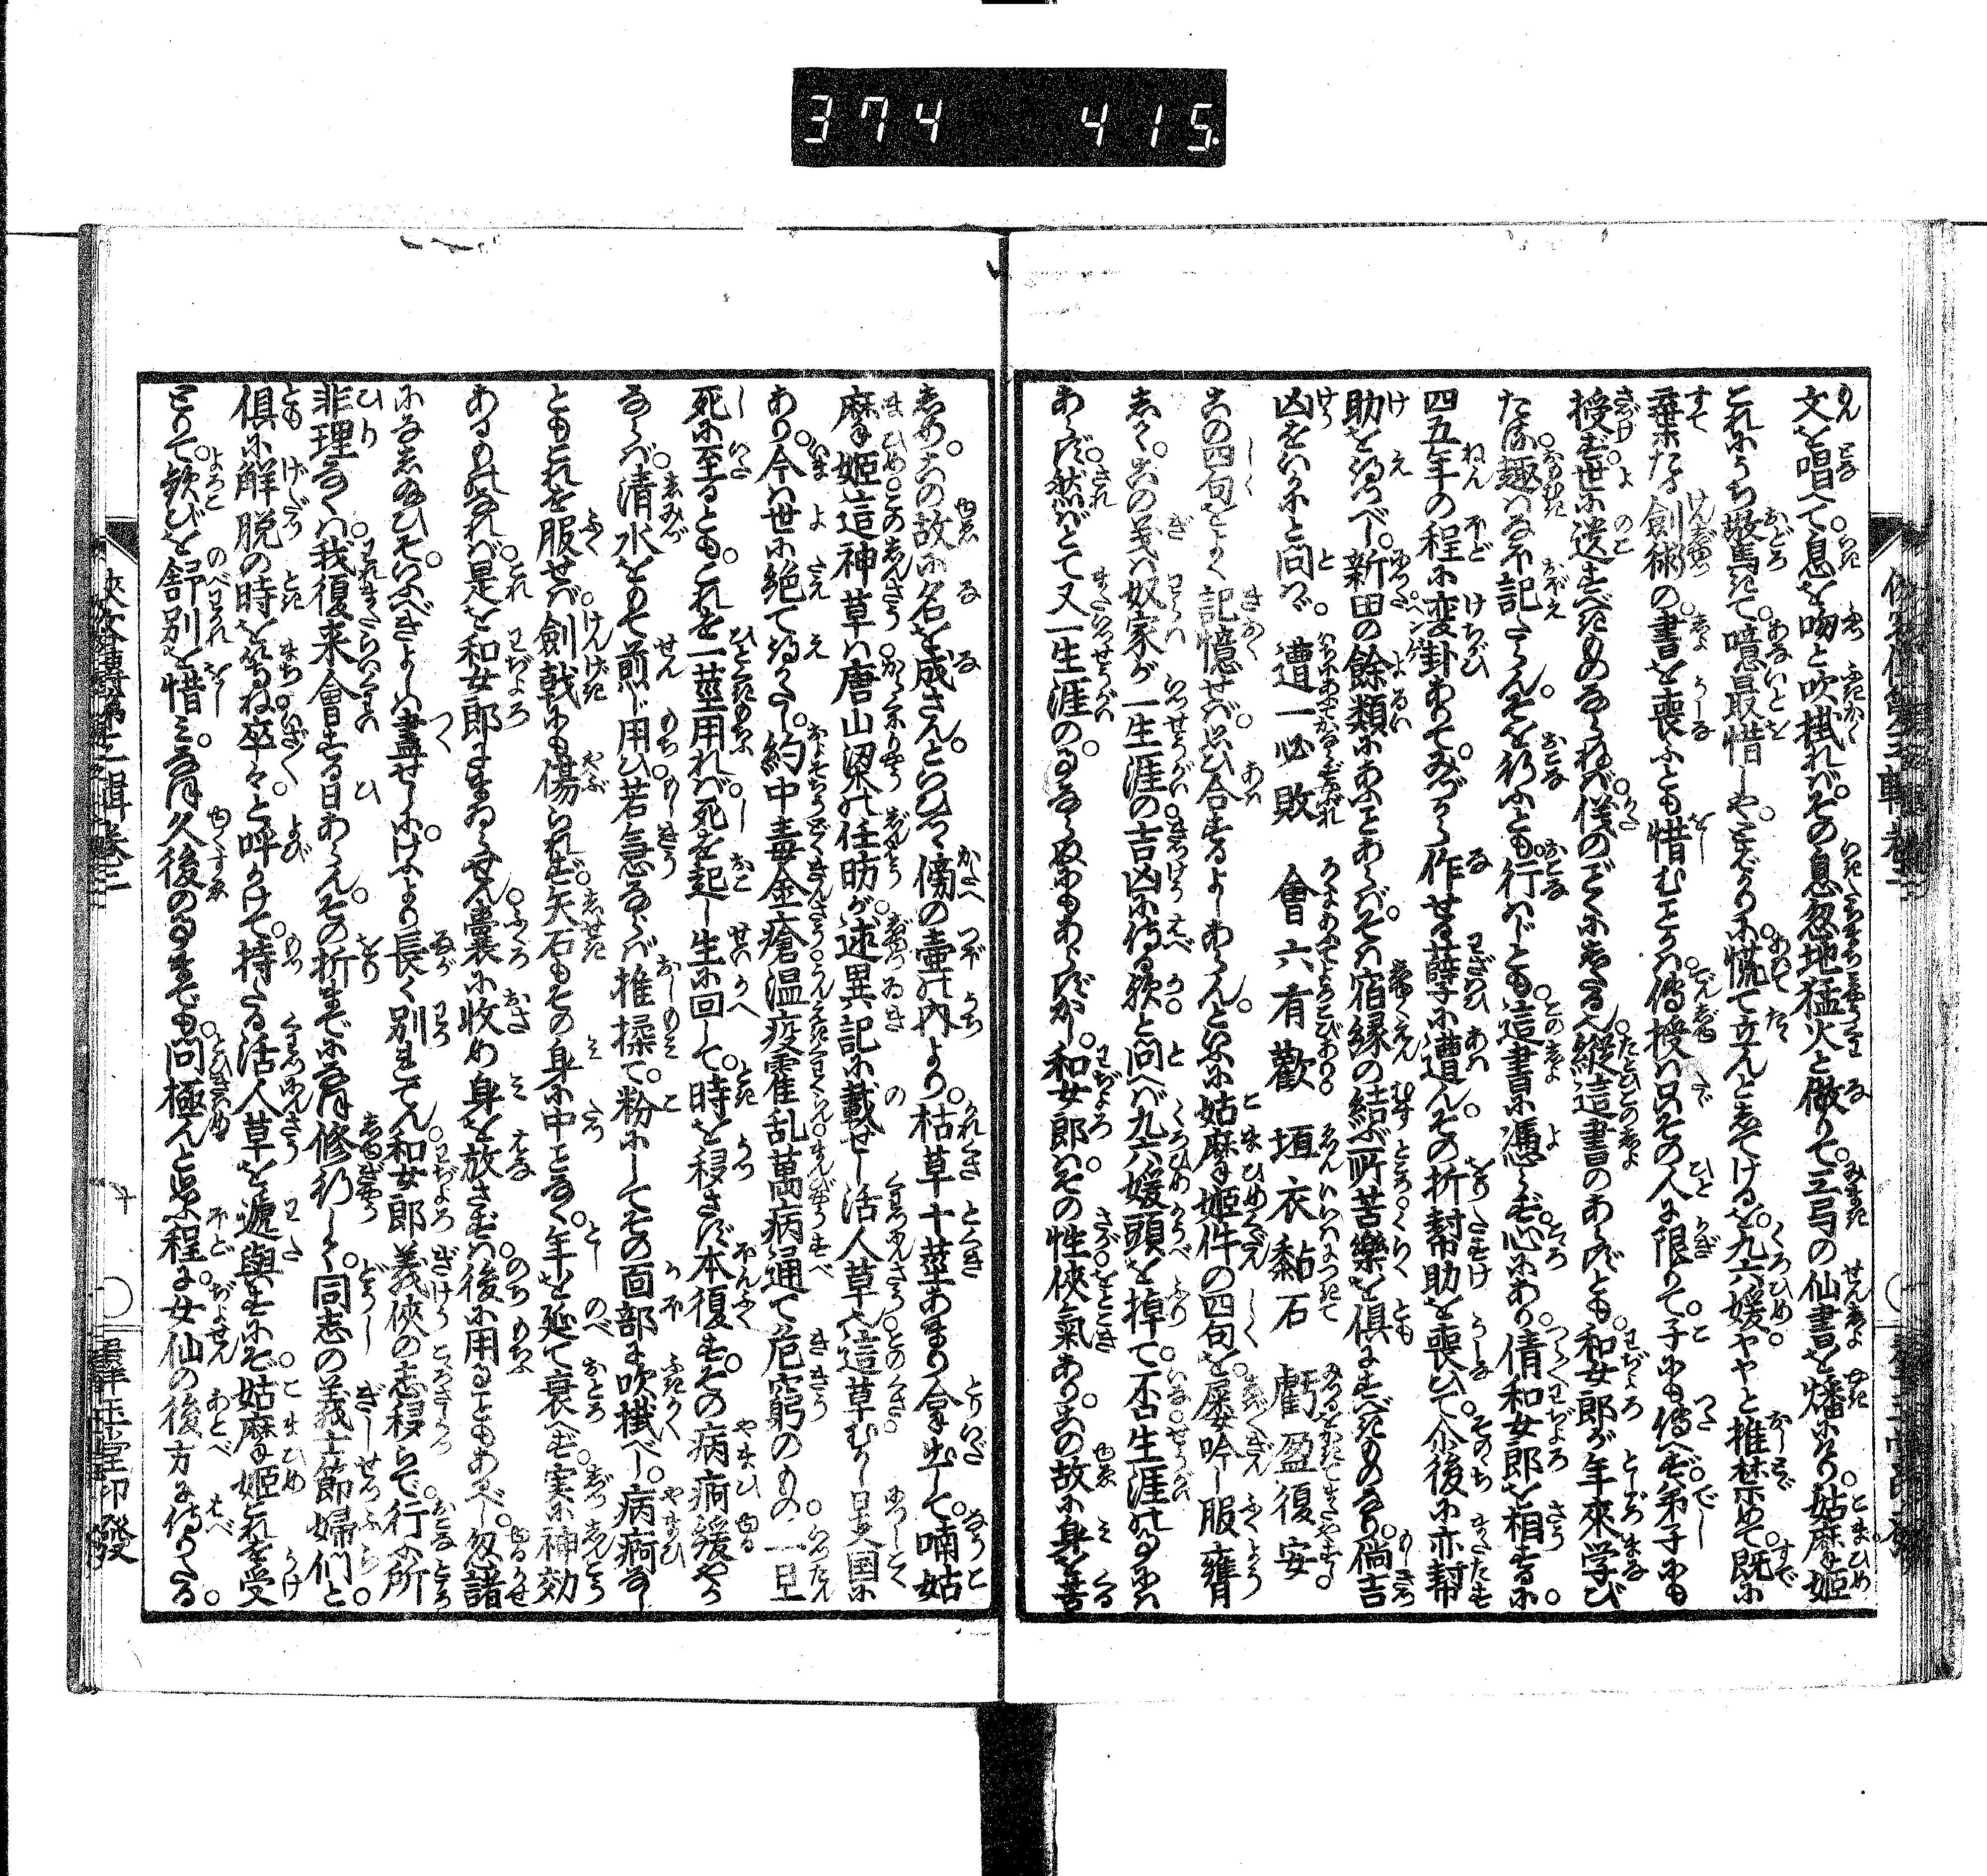 374 415
文を唱へて息を吻と吹掛れバその息忽地猛火と做りて三弓の仙書を燔にけり姑麻姫
これにうち驚馬きて噫最惜しやとばかりに慌て立んとしてけるを九六媛やゝと推禁めて既に
棄たる劍術の書を喪ふとも惜むことかハ傳授ハ只その人に限りて子にも傳へず弟子にも
授けず世に遺すべきものならねバ恁のごとくにしたる也縦這書のあらずとも和女郎が年來学び
たる趣ハなほ記てあらんそを行ふとも行ハずとも這書に憑らず心にあり倩和女郎を相するに
四五年の程に変卦ありてみづから作せる孽に遭んその折幇助を喪ひて尓後に亦幇
助を得べし新田の餘類にあふことあらバそハ宿縁の結ぶ所苦樂を倶にすべきものなり倘吉
凶をいかにと問ハヾ 遭一必敗 會六有歡 垣衣黏石 虧盈復安
この四句をよく記憶せバ思ひ合するよしあらんといふに姑麻姫件の四句を屡吟し服膺
しつゝこの義ハ奴家が一生涯の吉凶に侍る歟と問へバ九六媛頭を掉て否生涯の事にハ
あらず然バとて又一生涯の事ならぬにもあらずかし和女郎ハその性侠氣ありこの故に身を苦
しめこの故に名を成さんといひつゝ傍の壷の内より枯草十莖あまり拿出して喃姑
麻姫這神草ハ唐山梁の任昉が述異記に載せし活人草也這草むかし日支国に
あり今ハ世に絶て得がたし約中毒金瘡温疫霍乱萬病通て危窮のもの一旦
死に至るともこれを一莖用れバ死を起し生に回して時を移さず本復すその病痾緩やか
ならバ清水をもて煎じ用ひ若急ならバ推揉て粉にしてその面部に吹掛べし病痾なし
ともこれを服せバ劍戟にも傷られず矢石もその身に中ることなく年を延て衰へず実に神効
あるものなれバ是を和女郎にまゐらせん嚢に收め身を放さずハ後に用ることもあるべし忽諸
になしたまひそいふべきよしハ盡せしにけふより長く別れてん和女郎義侠の志移らで行ふ所
非理なくハ我復来會する日あらんその折までになほ修行しつゝ同志の義士節婦們と
倶に解脱の時をまちね卒々と呼かけて持たる活人草を遞與すにぞ姑麻姫これを受
とりて歓びを舒別を惜みなほ久後の事までも問極んと思ふ程に女仙の後方に侍りたる